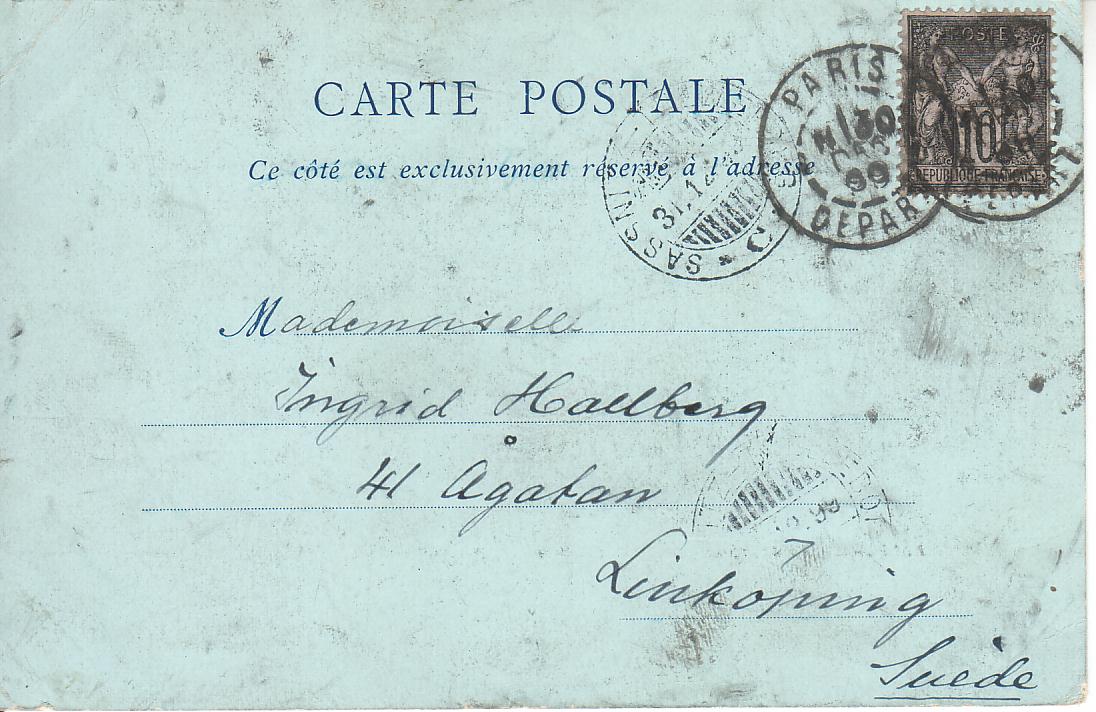 CARTE POSTALE
Ce côté est exclusivement réservé à l'adresse
POSTE
10
RÉPUBLIQUE FRANÇAISE
PARIS
30
99
DEPART
SASSNITZ
31.12
C
99
Mademoiselle
Ingrid Hallberg
41 Ågatan
Linköping
Suède